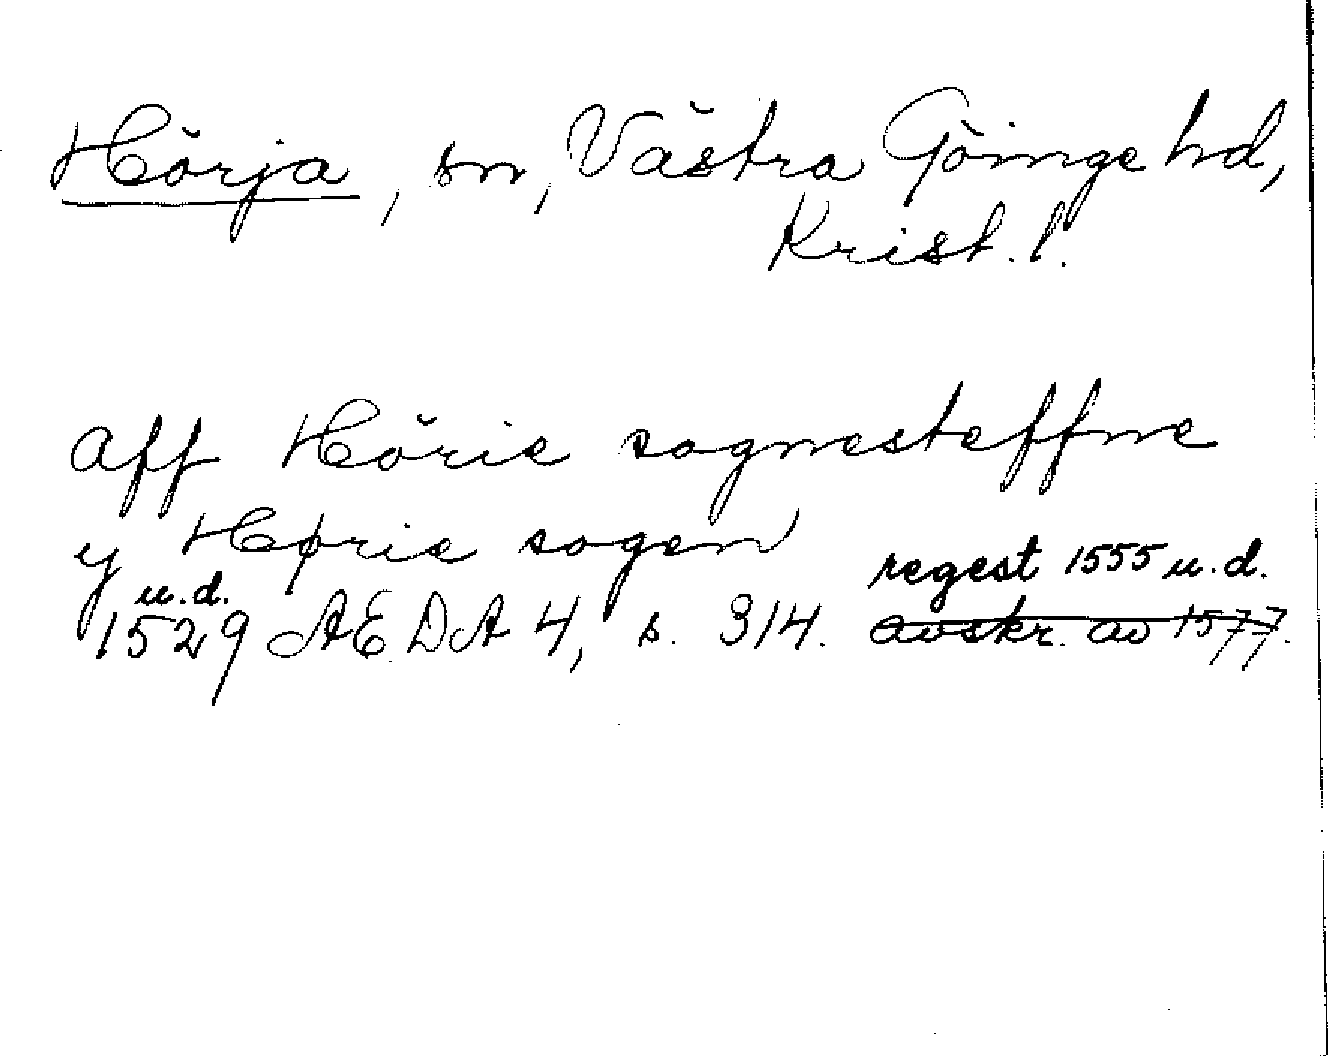 Hörja, sn, Västra Göinge hd,
Krist. l.
aff Hörie sognesteffne
y Hørie sogen
u.d. regest 1555 u.d.
1529 ÆDA 4, s. 314. avskr. av 1577.